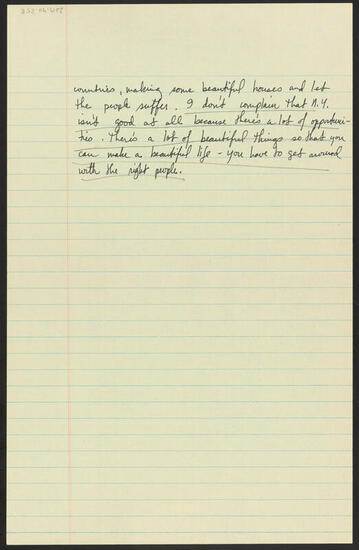 countries, making some beautiful houses and let
the people suffer. I don't complain that N.Y.
isn't good at all because there's a lot of opportuni-
ties. There's a lot of beautiful things so that you
can make a beautiful life - you have to get around
with the right people.